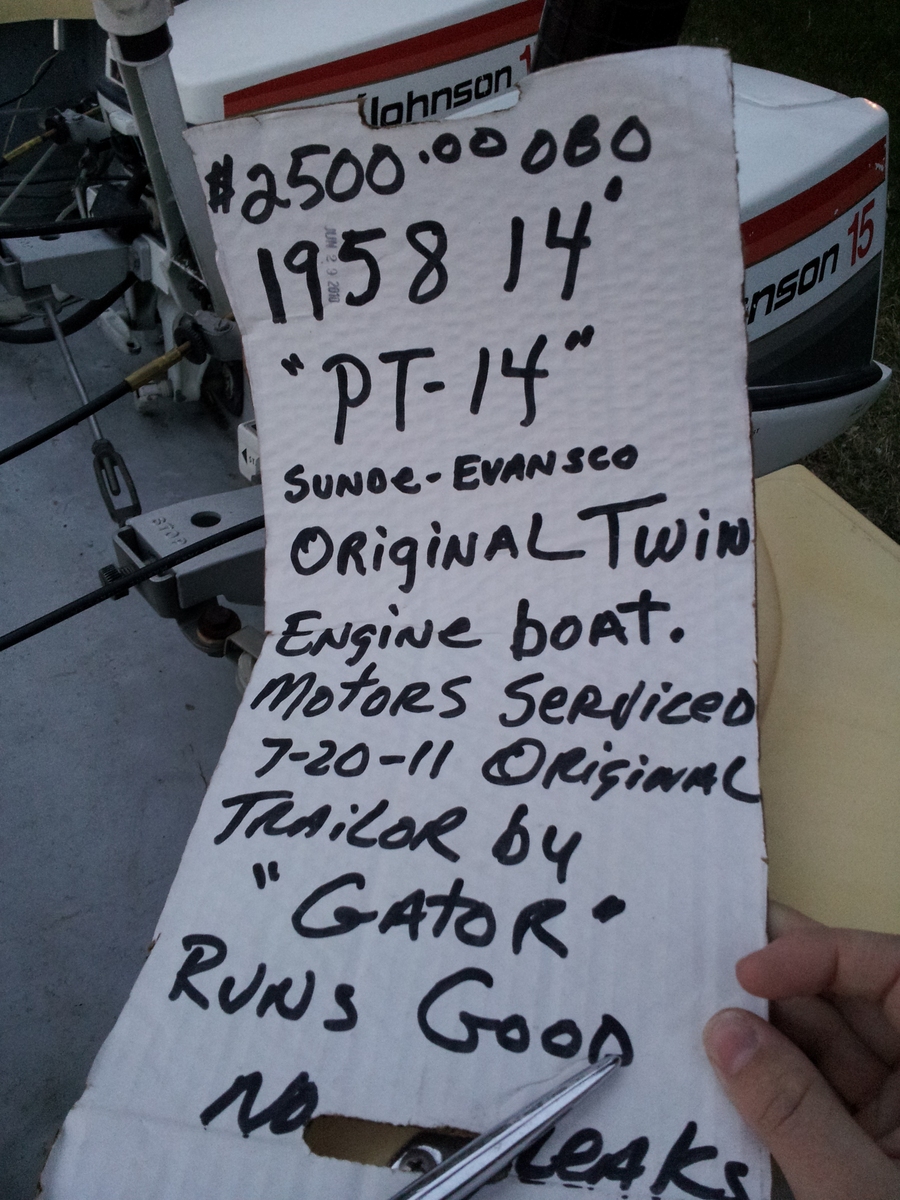 Johnson 1
$2500.00 OBO
1958 14'
JUN 29 2010
"PT-14"
SUNDE-EVANSCO
ORiGiNAL TWiN
ENGiNe boAT.
MOTORS SeRViCeD
7-20-11 ORiGiNAL
TRAiLOR by
"GATOR"
RUNS GOOD
NO LeAKS
nson 15
STOP